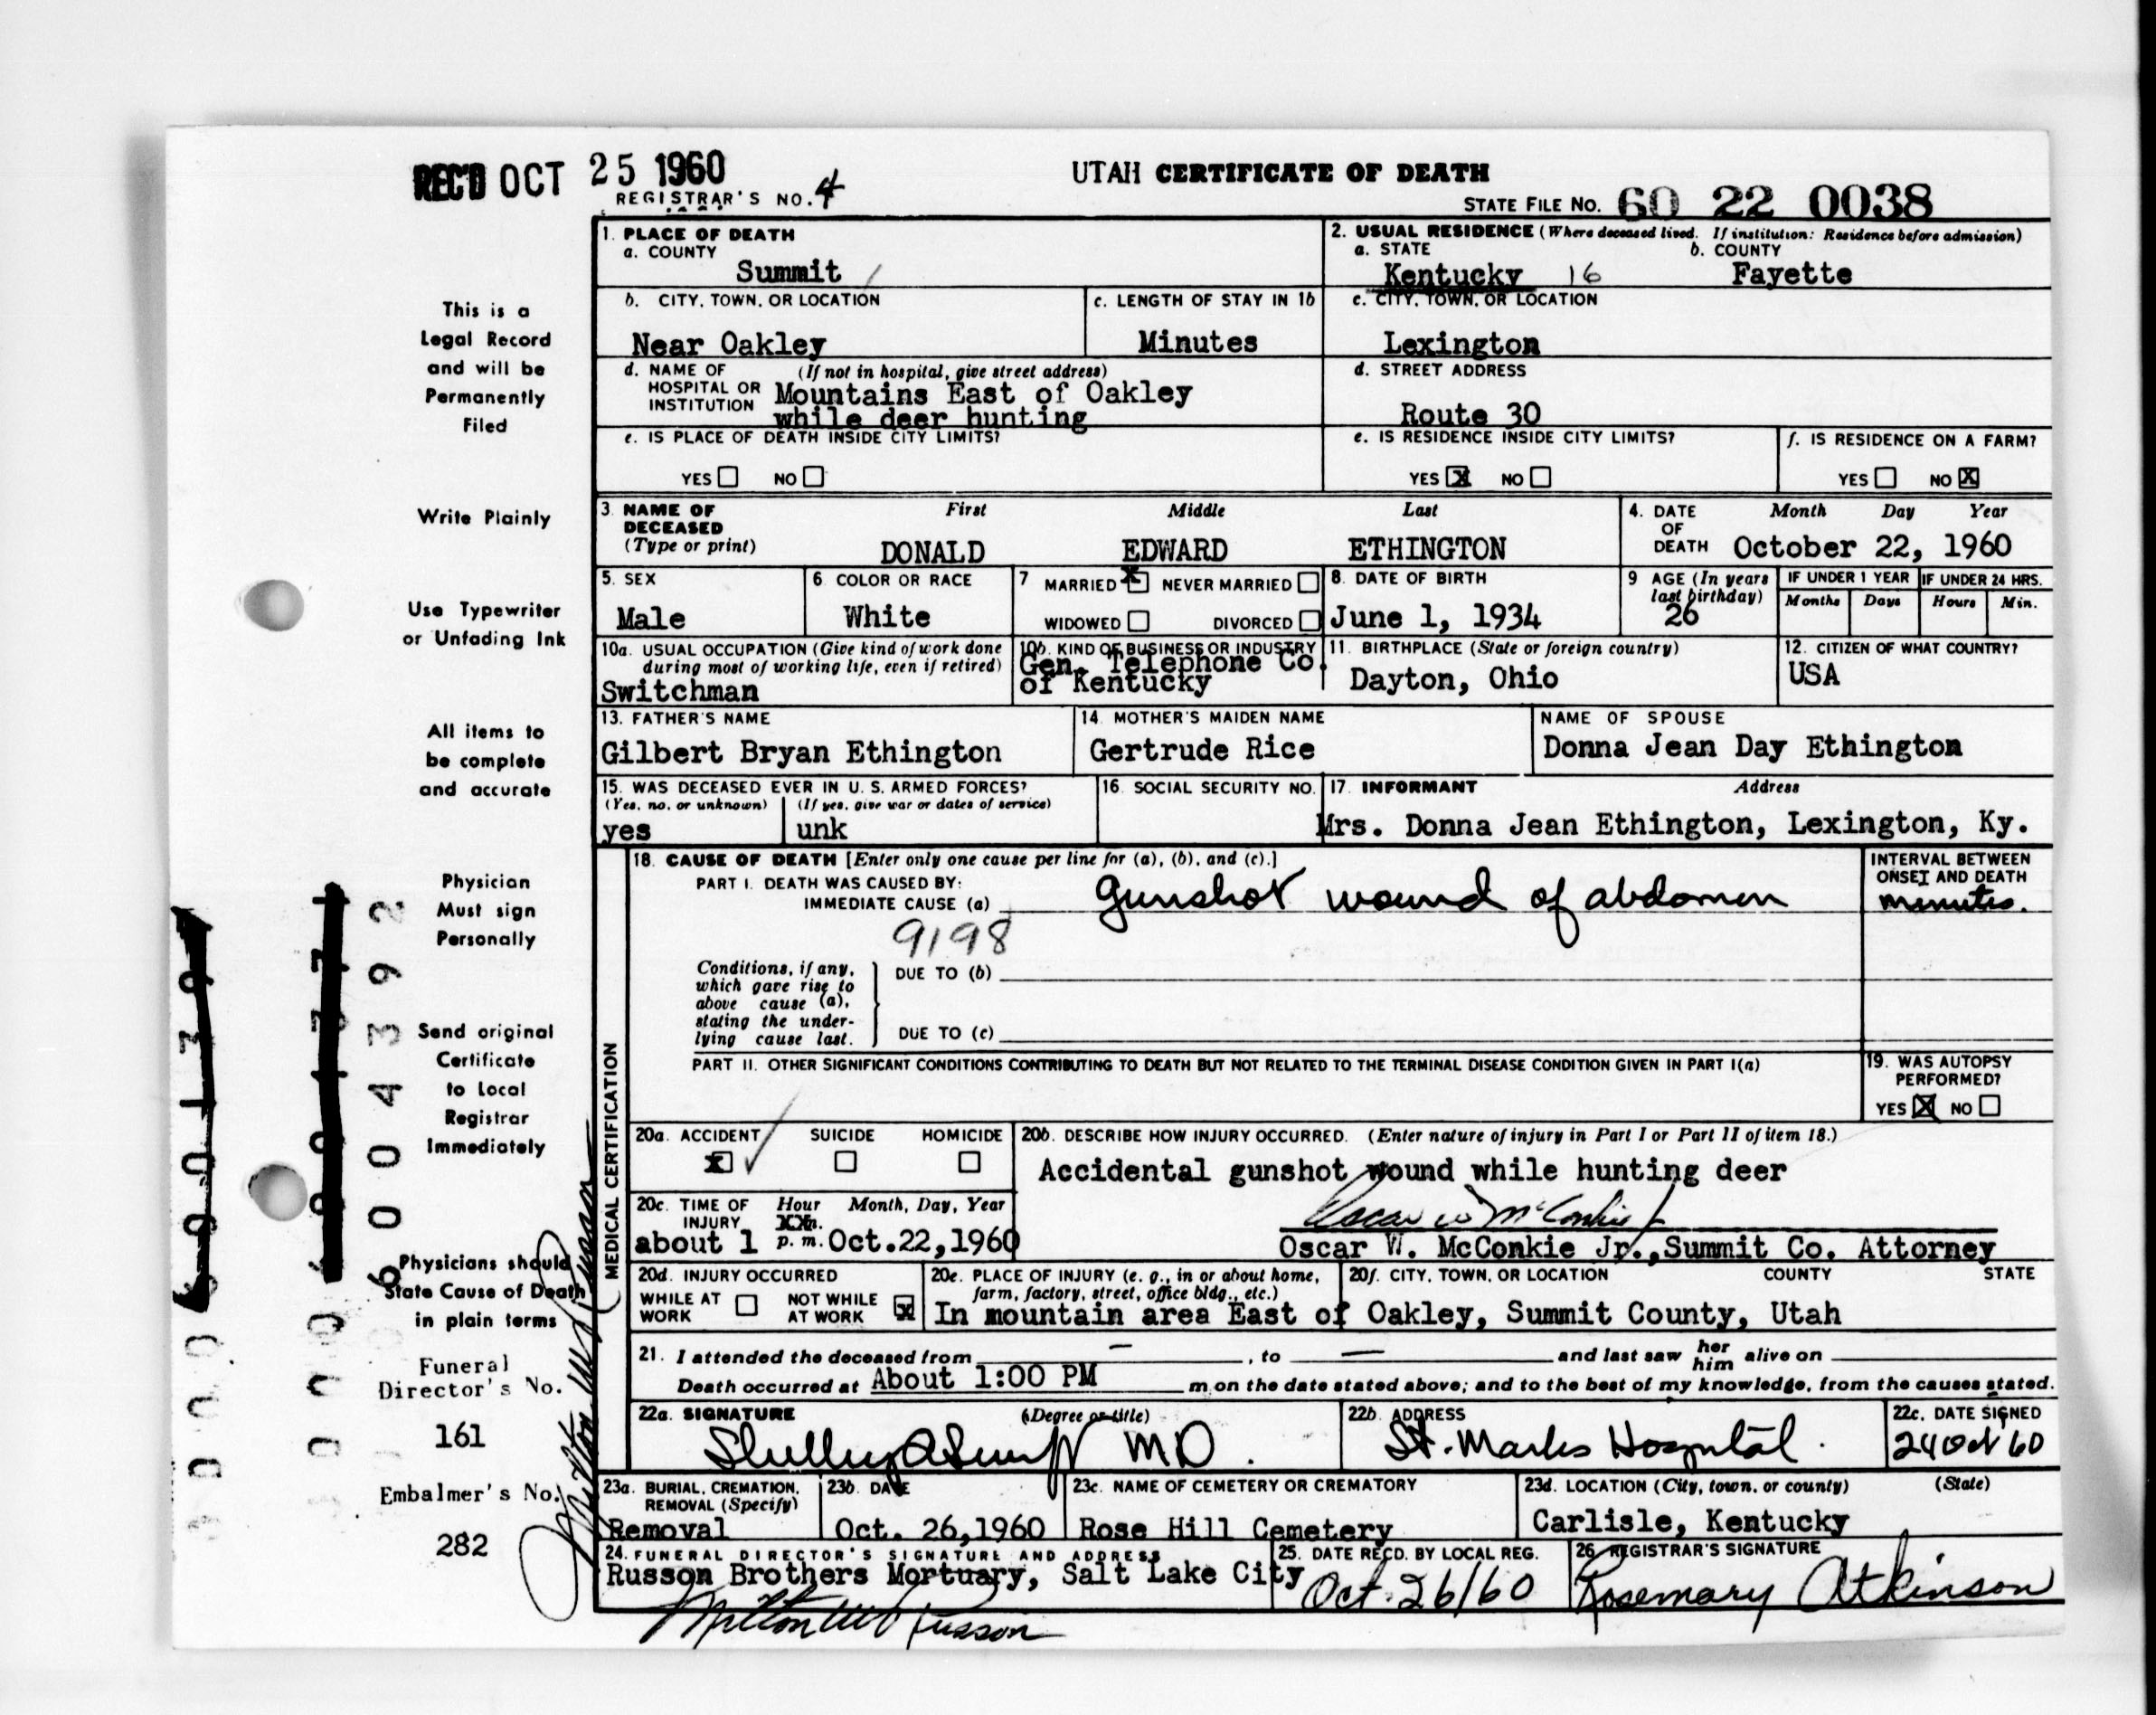 REC'D OCT 25 1960
REGISTRAR'S NO. 4
UTAH CERTIFICATE OF DEATH
STATE FILE NO. 60 22 0038
1. PLACE OF DEATH
a. COUNTY
Summit
2. USUAL RESIDENCE (Where deceased lived. If institution: Residence before admission)
a. STATE b. COUNTY
Kentucky 16 Fayette
b. CITY, TOWN, OR LOCATION
Near Oakley
c. LENGTH OF STAY IN 1b
Minutes
c. CITY, TOWN, OR LOCATION
Lexington
d. NAME OF HOSPITAL OR INSTITUTION (If not in hospital, give street address)
Mountains East of Oakley
while deer hunting
d. STREET ADDRESS
Route 30
e. IS PLACE OF DEATH INSIDE CITY LIMITS?
YES NO
e. IS RESIDENCE INSIDE CITY LIMITS?
YES X NO
f. IS RESIDENCE ON A FARM?
YES NO X
3. NAME OF DECEASED (Type or print)
First Middle Last
DONALD EDWARD ETHINGTON
4. DATE OF DEATH Month Day Year
October 22, 1960
5. SEX
Male
6. COLOR OR RACE
White
7 MARRIED X NEVER MARRIED
WIDOWED DIVORCED
8. DATE OF BIRTH
June 1, 1934
9 AGE (In years last birthday)
26
IF UNDER 1 YEAR IF UNDER 24 HRS.
Months Days Hours Min.
10a. USUAL OCCUPATION (Give kind of work done during most of working life, even if retired)
Switchman
10b. KIND OF BUSINESS OR INDUSTRY
Gen. Telephone Co.
of Kentucky
11. BIRTHPLACE (State or foreign country)
Dayton, Ohio
12. CITIZEN OF WHAT COUNTRY?
USA
13. FATHER'S NAME
Gilbert Bryan Ethington
14. MOTHER'S MAIDEN NAME
Gertrude Rice
NAME OF SPOUSE
Donna Jean Day Ethington
15. WAS DECEASED EVER IN U. S. ARMED FORCES?
(Yes, no, or unknown) (If yes, give war or dates of service)
yes unk
16. SOCIAL SECURITY NO.
17. INFORMANT Address
Mrs. Donna Jean Ethington, Lexington, Ky.
MEDICAL CERTIFICATION
18. CAUSE OF DEATH [Enter only one cause per line for (a), (b), and (c).]
PART I. DEATH WAS CAUSED BY:
IMMEDIATE CAUSE (a) gunshot wound of abdomen
INTERVAL BETWEEN ONSET AND DEATH
minutes.
9198
Conditions, if any, which gave rise to above cause (a), stating the underlying cause last.
DUE TO (b)
DUE TO (c)
PART II. OTHER SIGNIFICANT CONDITIONS CONTRIBUTING TO DEATH BUT NOT RELATED TO THE TERMINAL DISEASE CONDITION GIVEN IN PART I(a)
19. WAS AUTOPSY PERFORMED?
YES X NO
20a. ACCIDENT SUICIDE HOMICIDE
X
20b. DESCRIBE HOW INJURY OCCURRED. (Enter nature of injury in Part I or Part II of item 18.)
Accidental gunshot wound while hunting deer
Oscar W McConkie Jr
Oscar W. McConkie Jr., Summit Co. Attorney
20c. TIME OF INJURY Hour Month, Day, Year
about 1 p. m. Oct.22,1960
20d. INJURY OCCURRED
WHILE AT WORK NOT WHILE AT WORK X
20e. PLACE OF INJURY (e. g., in or about home, farm, factory, street, office bldg., etc.)
20f. CITY, TOWN, OR LOCATION COUNTY STATE
In mountain area East of Oakley, Summit County, Utah
21. I attended the deceased from — , to — and last saw her him alive on
Death occurred at About 1:00 PM m on the date stated above; and to the best of my knowledge, from the causes stated.
22a. SIGNATURE (Degree or title)
MD.
22b. ADDRESS
St. Marks Hospital.
22c. DATE SIGNED
24 Oct 60
23a. BURIAL, CREMATION, REMOVAL (Specify)
Removal
23b. DATE
Oct. 26,1960
23c. NAME OF CEMETERY OR CREMATORY
Rose Hill Cemetery
23d. LOCATION (City, town, or county) (State)
Carlisle, Kentucky
24. FUNERAL DIRECTOR'S SIGNATURE AND ADDRESS
Russon Brothers Mortuary, Salt Lake City
Milton W Russon
25. DATE RECD. BY LOCAL REG.
Oct. 26/60
26. REGISTRAR'S SIGNATURE
Rosemary Atkinson
This is a
Legal Record
and will be
Permanently
Filed
Write Plainly
Use Typewriter
or Unfading Ink
All items to
be complete
and accurate
Physician
Must sign
Personally
Send original
Certificate
to Local
Registrar
Immediately
Physicians should
State Cause of Death
in plain terms
Funeral
Director's No.
161
Embalmer's No.
282
6004392